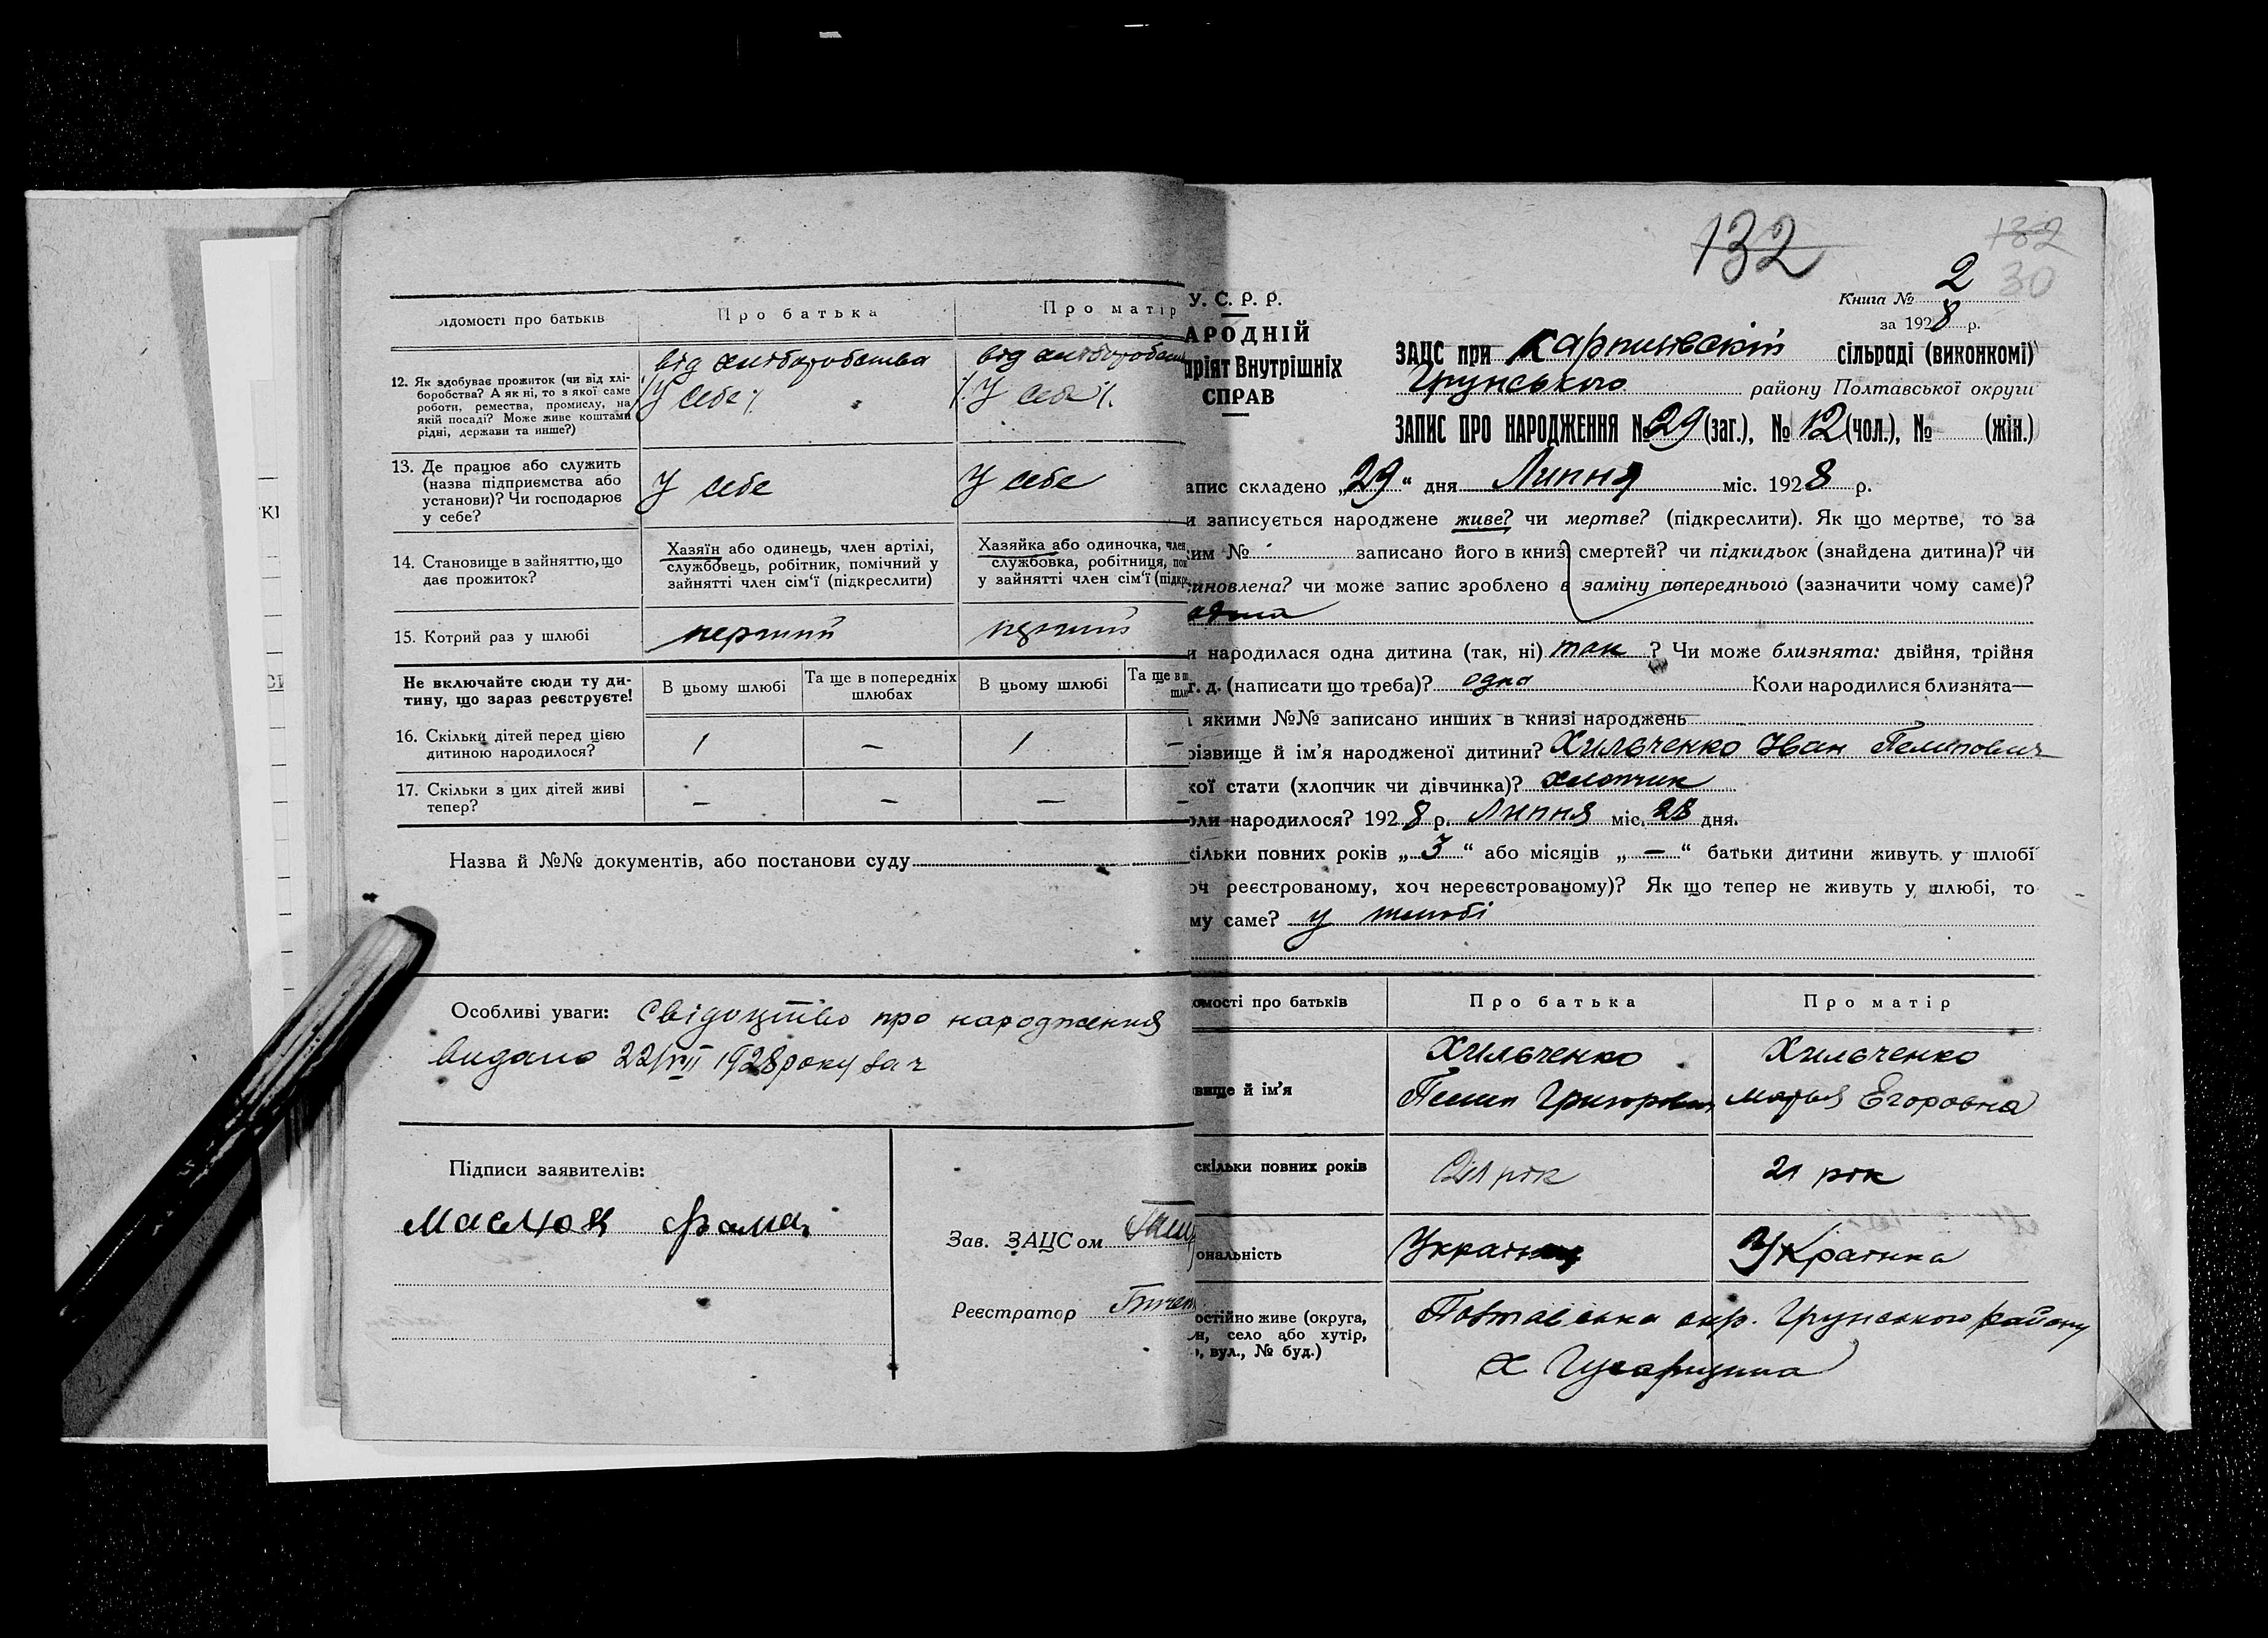 Відомості про батьків
Про батька
Про матір
від хліборобства
від хліборобства
12. Як здобуває прожиток (чи від хлі-
боробства? А як ні, то з якої саме
роботи, ремества, промислу, на
якій посаді? Може живе коштами
рідні, держави та инше?)
У себе
У себе
13. Де працює або служить
(назва підприємства або
установи)? Чи господарює
у себе?
У себе
У себе
14. Становище в зайняттю, що
дає прожиток?
Хазяїн або одинець, член артілі,
службовець, робітник, помічний у
зайнятті член сім'ї (підкреслити)
Хазяйка або одиночка, член
службовка, робітниця, пом
у зайнятті член сім'ї (підкре
15. Котрий раз у шлюбі
перший
перший
Не включайте сюди ту ди-
тину, що зараз реєструєте!
В цьому шлюбі
Та ще в попередніх
шлюбах
В цьому шлюбі
Та ще в п
шлю
16. Скільки дітей перед цією
дитиною народилося?
1 — 1 —
17. Скільки з цих дітей живі
тепер?
— — — —
Назва й №№ документів, або постанови суду
Особливі уваги: Свідоцтво про народження
видано 22/VII 1928 року за ч
Підписи заявителів:
Зав. ЗАЦСом
Реєстратор
132
132
30
Книга № 2
за 1928 р.
У. С. Р. Р.
АРОДНІЙ
ріят Внутрішніх
СПРАВ
ЗАЦС при Карпилвській сільраді (виконкомі)
Грунського району Полтавської округи
ЗАПИС ПРО НАРОДЖЕННЯ № 29 (заг.), № 12 (чол.), № (жін.)
апис складено „29“ дня Липня міс. 1928 р.
и записується народжене живе? чи мертве? (підкреслити). Як що мертве, то за
ким № записано його в книзі смертей? чи підкидьок (знайдена дитина)? чи
иновлена? чи може запис зроблено в заміну попереднього (зазначити чому саме)?
и народилася одна дитина (так, ні) так ? Чи може близнята: двійня, трійня
т. д. (написати що треба)? одна Коли народилися близнята—
якими №№ записано инших в книзі народжень
різвище й ім'я народженої дитини? Хильченко Іван Пелипович
кої стати (хлопчик чи дівчинка)? хлопчик
оли народилося? 1928 р. Липня міс. 28 дня.
кільки повних років „3“ або місяців „—“ батьки дитини живуть у шлюбі
оч реєстрованому, хоч нереєстрованому)? Як що тепер не живуть у шлюбі, то
му саме? у шлюбі
омості про батьків
Про батька
Про матір
вище й ім'я
Хильченко
Пелип Григорович
Хильченко
Марья Егоровна
скільки повних років
21 рік
21 рік
ональність
Українка
остійно живе (округа,
н, село або хутір,
, вул., № буд.)
Повтавська окр. Грунського району
х Гусарщина